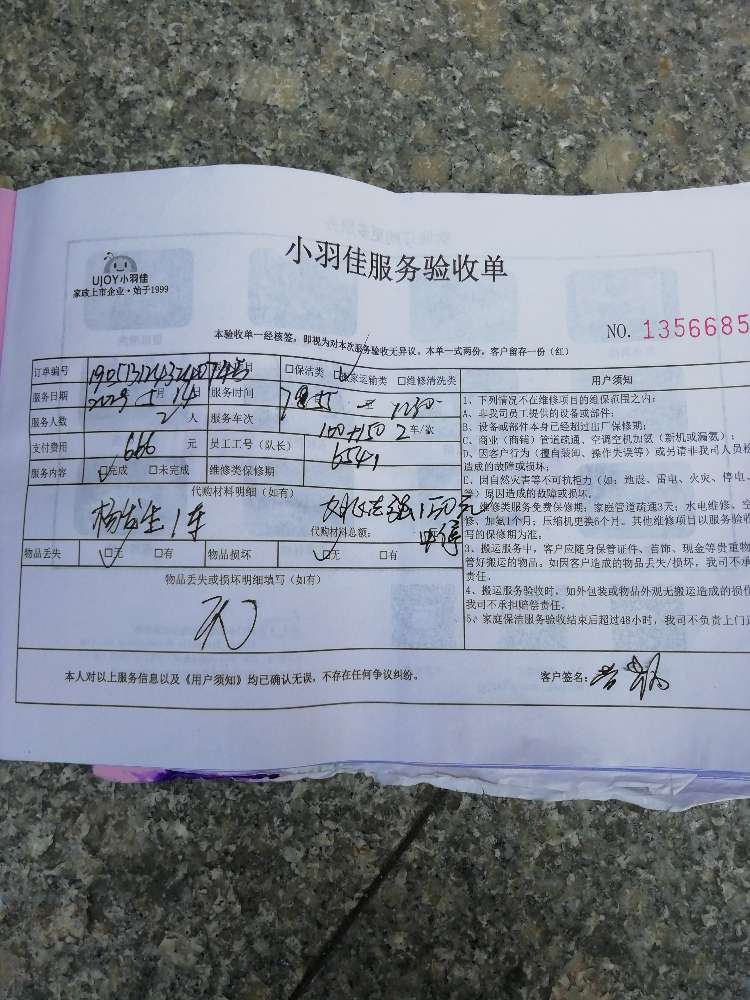 UJOY小羽佳
家政上市企业·始于1999
小羽佳服务验收单
NO. 1356685
本验收单一经核签，即视为对本次服务验收无异议。本单一式两份，客户留存一份（红）
订单编号 □保洁类 □搬家运输类 □维修清洗类 用户须知
服务日期 月 14日 服务时间
服务人数 2 人 服务车次 100+150 2 车/次
支付费用 666 元 员工工号（队长） 6541
服务内容 □完成 □未完成 维修类保修期
代购材料明细（如有）
杨发生1车 150元
代购材料总额：
物品丢失 □无 □有 物品损坏 □无 □有
物品丢失或损坏明细填写（如有）
无
1、下列情况不在维修项目的维保范围之内：
A、非我司员工提供的设备或部件；
B、设备或部件本身已经超过出厂保修期；
C、商业（商铺）管道疏通、空调空机加氨（新机或漏氨）；
D、因客户行为（擅自装卸、操作失误等）或另请非我司人员检
造成的故障或损坏；
E、因自然灾害等不可抗拒力（如：地震、雷电、火灾、停电、
等）原因造成的故障或损坏。
维修类服务免费保修期：家庭管道疏通3天；水电维修、空
修、加氨1个月；压缩机更换6个月。其他维修项目以服务验收
写的保修期为准。
3、搬运服务中，客户应随身保管证件、首饰、现金等贵重物
管好搬运的物品。如因客户造成的物品丢失/损坏，我司不承
责任。
4、搬运服务验收时，如外包装或物品外观无搬运造成的损伤
我司不承担赔偿责任。
5、家庭保洁服务验收结束后超过48小时，我司不负责上门
本人对以上服务信息以及《用户须知》均已确认无误，不存在任何争议纠纷。 客户签名：